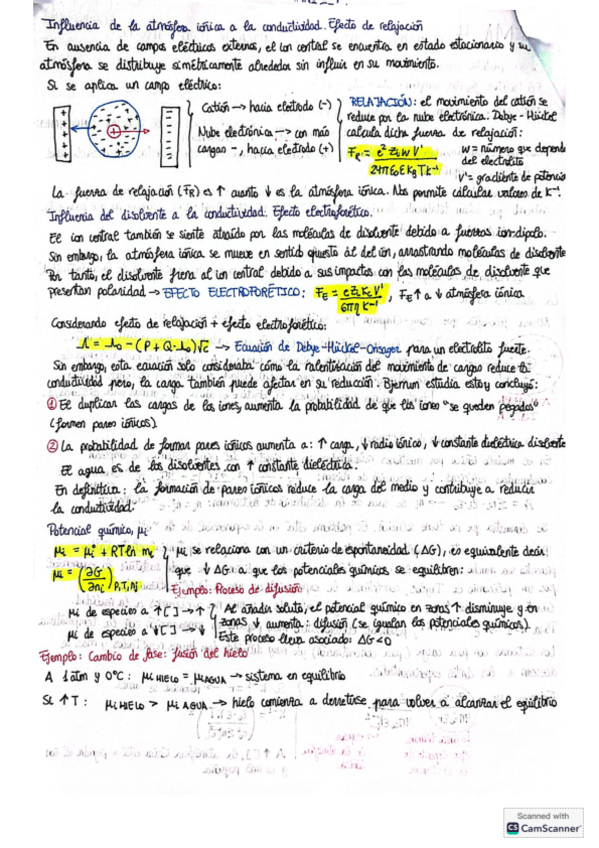 Influencia de la atmósfera iónica a la conductividad. Efecto de relajación
En ausencia de campos eléctricos externos, el ion central se encuentra en estado estacionario y su
atmósfera se distribuye simétricamente alrededor sin influir en su movimiento.
Si se aplica un campo eléctrico:
Catión → hacia electrodo (-)
Nube electrónica → con más
cargas -, hacia electrodo (+)
RELAJACIÓN: el movimiento del catión se
reduce por la nube electrónica. Debye-Hückel
calcula dicha fuerza de relajación:
F_R = e² Z_i W V' / 24πε₀ε K_B T K⁻¹
W = número que depende
del electrolito
V' = gradiente de potencia
La fuerza de relajación (F_R) es ↑ cuanto ↓ es la atmósfera iónica. Nos permite calcular valores de K⁻¹.
Influencia del disolvente a la conductividad. Efecto electroforético.
El ion central también se siente atraído por las moléculas de disolvente debido a fuerzas ion-dipolo.
Sin embargo, la atmósfera iónica se mueve en sentido opuesto al del ion, arrastrando moléculas de disolvente
Por tanto, el disolvente frena al ion central debido a sus impactos con las moléculas de disolvente que
presentan polaridad → EFECTO ELECTROFORÉTICO: F_E = e Z_i K_c V' / 6πη K⁻¹, F_E ↑ a ↓ atmósfera iónica
Considerando efecto de relajación + efecto electroforético:
Λ = Λ₀ - (P + Q·Λ₀)√c → Ecuación de Debye-Hückel-Onsager para un electrolito fuerte.
Sin embargo, esta ecuación solo consideraba cómo la ralentización del movimiento de cargas reduce la
conductividad pero, la carga también puede afectar en su reducción. Bjerrum estudia esto y concluyó:
① El duplicar las cargas de los iones, aumenta la probabilidad de que los iones "se queden pegados"
(formen pares iónicos)
② La probabilidad de formar pares iónicos aumenta a: ↑ carga, ↓ radio iónico, ↓ constante dieléctrica disolvente
El agua es de los disolventes con ↑ constante dieléctrica.
En definitiva: la formación de pares iónicos reduce la carga del medio y contribuye a reducir
la conductividad.
Potencial químico, μi
μi = μi° + RT ln mi
μi = (∂G/∂ni) P,T,nj
μi se relaciona con un criterio de espontaneidad (ΔG), es equivalente decir
que ↓ ΔG a que los potenciales químicos se equilibren:
Ejemplo: Proceso de difusión:
μi de especies a ↑ [ ] → ↑
μi de especies a ↓ [ ] → ↓
Al añadir soluto, el potencial químico en zonas ↑ disminuye y en
zonas ↓ aumenta: difusión (se igualan los potenciales químicos).
Este proceso lleva asociado: ΔG<0
Ejemplo: Cambio de fase: fusión del hielo
A 1atm y 0°C: μi HIELO = μi AGUA → sistema en equilibrio
Si ↑ T: μi HIELO > μi AGUA → hielo comienza a derretirse para volver a alcanzar el equilibrio
Scanned with
CS CamScanner